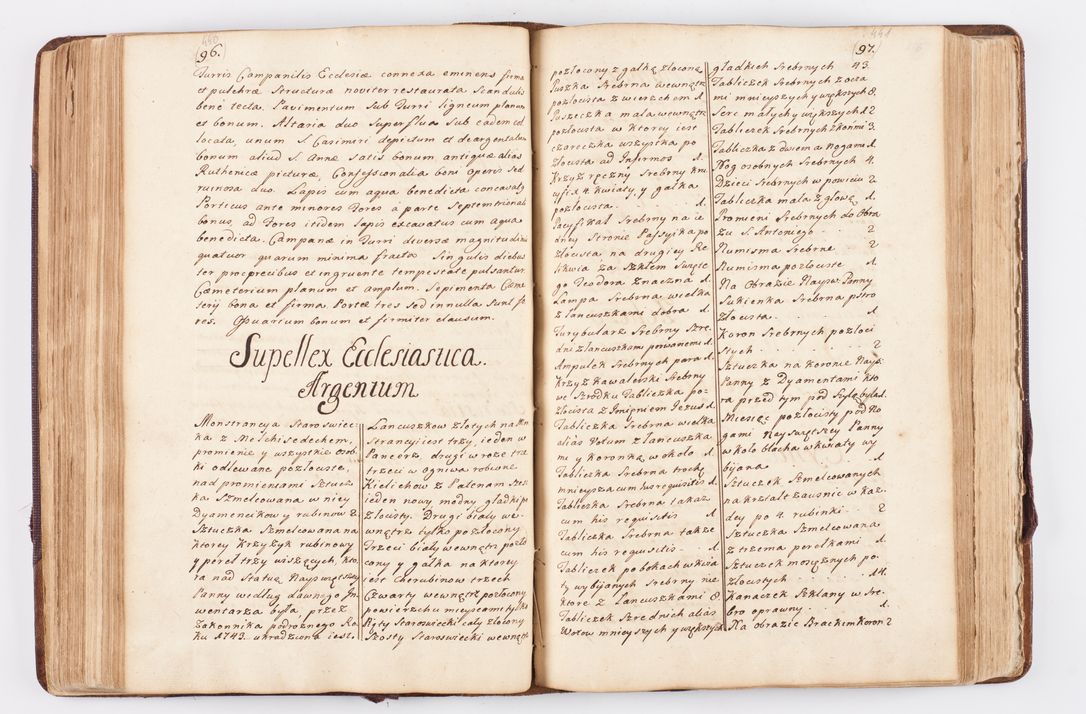 440
(96.)
Turris Campanilis Ecclesiæ connexa eminens firma
et pulchræ structuræ noviter restaurata Scandulis
bene tecta. Pavimentum sub Turri ligneum planum
et bonum. Altaria duo superflua sub eadem col
locata, unum S. Casimiri depictum et deargentatum
bonum aliud S. Annæ satis bonum antiquæ alias
Ruthenicæ picturæ, Confessionalia boni operis sed
ruinosa duo. Lapis cum aqua benedicta concavatq
Porticus ante minores Fores à parte Septemtrionali
bonus, ad Fores itidem lapis excavatus cum aqua
benedicta. Campanæ in Turri diversæ magnitudinis
quatuor quarum minima fracta singulis diebus
ter pro precibus et ingruente tempestate pulsantur.
Cæmeterium planum et amplum. Sepimenta Cæme
terij bona et firma Portæ tres sed in nulla sunt fo
res. Ossuarium bonum et firmiter clausum.
Supellex Ecclesiastica.
Argentum
Monstrancya Staroswiec
ka z Melchisedechem,
promienie y wszystkie osob
ki odlewane pozłociste,
nad promieniami Sztucz
ka Szmelcowana w niey
Dyamencikow y rubinow 2.
Sztuczka Szmelcowana na
ktorey Krzyżyk rubinowy
y pereł trzy wiszących, kto
ra nad Statuą Nayswiętszey
Panny według dawnego In
wentarza była przez
Zakonnika podrożnego Ro
ku 1743. ukradziona iest.
Łancuszkow złotych na Mon
strancyi iest trzy, ieden w
Pancerz, drugi w roze trze
trzeci w Ogniwa robione
Kielichow z Patenam szesc
ieden nowy modny gładki po
złocisty. Drugi biały we
wnątrz tylko pozłocony
Trzeci biały wewnątrz pozło
cony y gałka na ktorey
iest Cherubinow trzech
Czwarty wewnątrz pozłocony
powierzchu mieyscami tylko
Piąty Staroswiecki cały złocony
Szosty Staroswiecki wewnątrz
441
(97.
pozłocony z gałką złoconą
Puszka Srebrna wewnątrz
pozłocista z wierzchem 1.
Puszeczka mała wewnątrz
pozłocista w ktorey iest
czareczka wszystka po
złocista ad Infirmos 1.
Krzyż ręczny Srebrny kru
cyfix 4 kwiaty, y gałka
pozłocista. 1.
Pacyfikał Srebrny na ie
dney Stronie Passyika po
złocista na drugiey Re
likwia za Szkłem Swięte
go Teodora znaczna 1.
Lampa Srebrna wielka
z łancuszkami dobra 1.
Turybularz Srebrny Szre
dni z łancuszkami porwanemi 1.
Ampułek Srebrnych para 1.
Krzyż Kawalerski Srebrny
we Srzodku Tabliczka po
złocista z Imieniem Jezus 1.
Tabliczka Srebrna wielka
alias Votum z łancuszka
mi y koronką w około 1.
Tabliczka Srebrna trochę
mnieysza cum his requisitis 1.
Tabliczka Srebrna takaz
cum his requisitis 1.
Tabliczka Srebrna także
cum his requisitis 1.
Tabliczek po bokach w kwia
ty wybijanych Srebrny nie
ktore z łancuszkami 8.
Tabliczek Szrednich alias
Wotow mnieyszych y większych
gładkich Srebrnych 43.
Tabliczek Srebrnych z ocza
mi mnieyszych y większych 8.
Serc małych y większych 12
Tabliczek Srebrnych z konmi 3.
Tabliczka z dwiema Nogami 1.
Nog osobnych Srebrnych 4.
Dzieci Srebrnych w powiciu 2
Tabliczka mała z głową 1.
Promieni Srebrnych do Obra
zu S. Antoniego 2
Numisma Srebrne 2
Numisma pozłociste 1.
Na Obrazie Nayśw: Panny
Sukienka Srebrna pstro
złocista. 1
Koron Srebrnych pozłoci
stych 2
Sztuczka na koronie Nayś:
Panny z Dyamentami kto
ra przed tym pod Szyią była 1.
Miesiąc pozłocisty pod No
gami Nayswiętszey Panny
w koło blacha w kwiaty wy
bijana 1
Sztuczek Szmelcowanych
na kształt zausnic w kaz
dey po 4. rubinki 2
Sztuczka Szmelcowana
z trzema perełkami 1.
Sztuczek mosiężnych po
złocistych 14.
Kanaczek Szklany w Sre
bro oprawny 1.
Na obrazie Brackim Koron 2